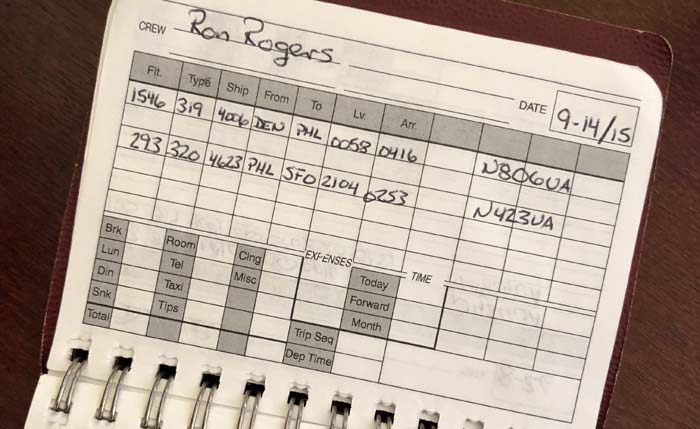 CREW Ron Rogers
DATE 9-14/15
Flt. Type Ship From To Lv. Arr.
1546 319 4006 DEN PHL 0058 0416 N806UA
293 320 4623 PHL SFO 2104 0253 N423UA
EXPENSES TIME
Brk Room Clng Today
Lun Tel Misc Forward
Din Taxi Month
Snk Tips Trip Seq
Total Dep Time